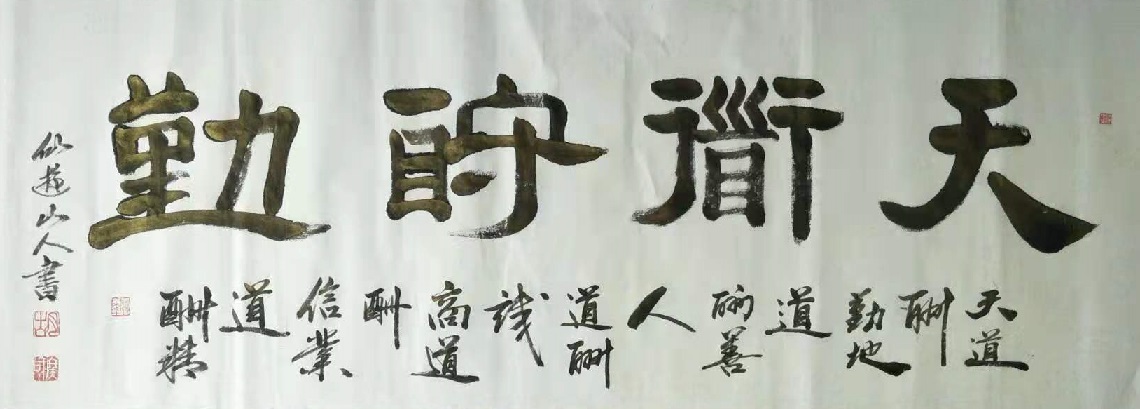 天道酬勤
天道
酬
勤地
道
酬善
人
道酬
誠
商道
酬
信業
道
酬精
仙遊山人書